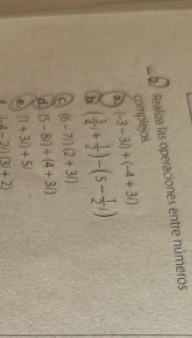 Realiza las operaciones entre números
complejos
a (-3 - 3i) + (-4 + 3i)
b (3/4 i + 1/2) - (5 - 1/2 i)
c (6 - 7i)(2 + 3i)
d (5 - 8i) + (4 + 3i)
e (1 + 3i) + 5i
(-4 - 2i)(3 + 2